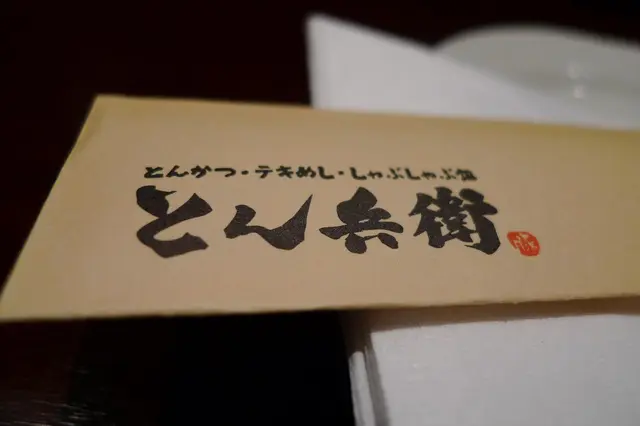 とんかつ・テキめし・しゃぶしゃぶ鍋
とん兵衛